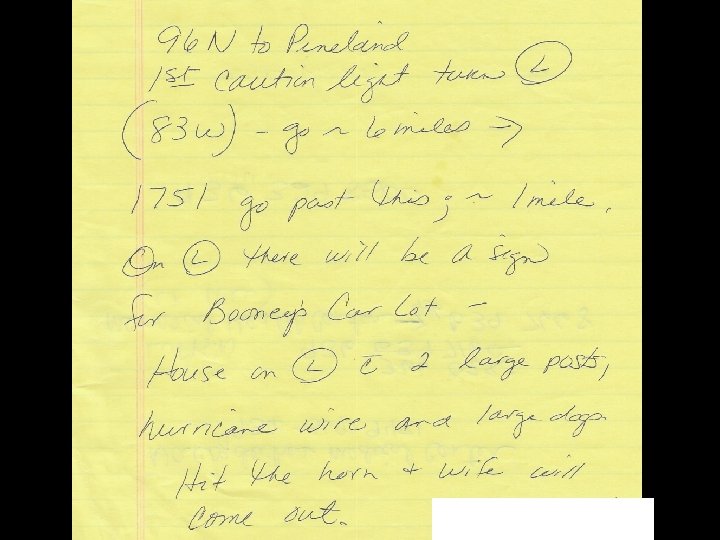 96 N to Pineland
1st caution light turn Ⓛ
(83W) - go ~ 6 miles →
1751 go past this; ~ 1 mile.
On Ⓛ there will be a sign
for Booney's Car Lot -
House on Ⓛ c̄ 2 large posts,
hurricane wire and large dogs.
Hit the horn + wife will
come out.